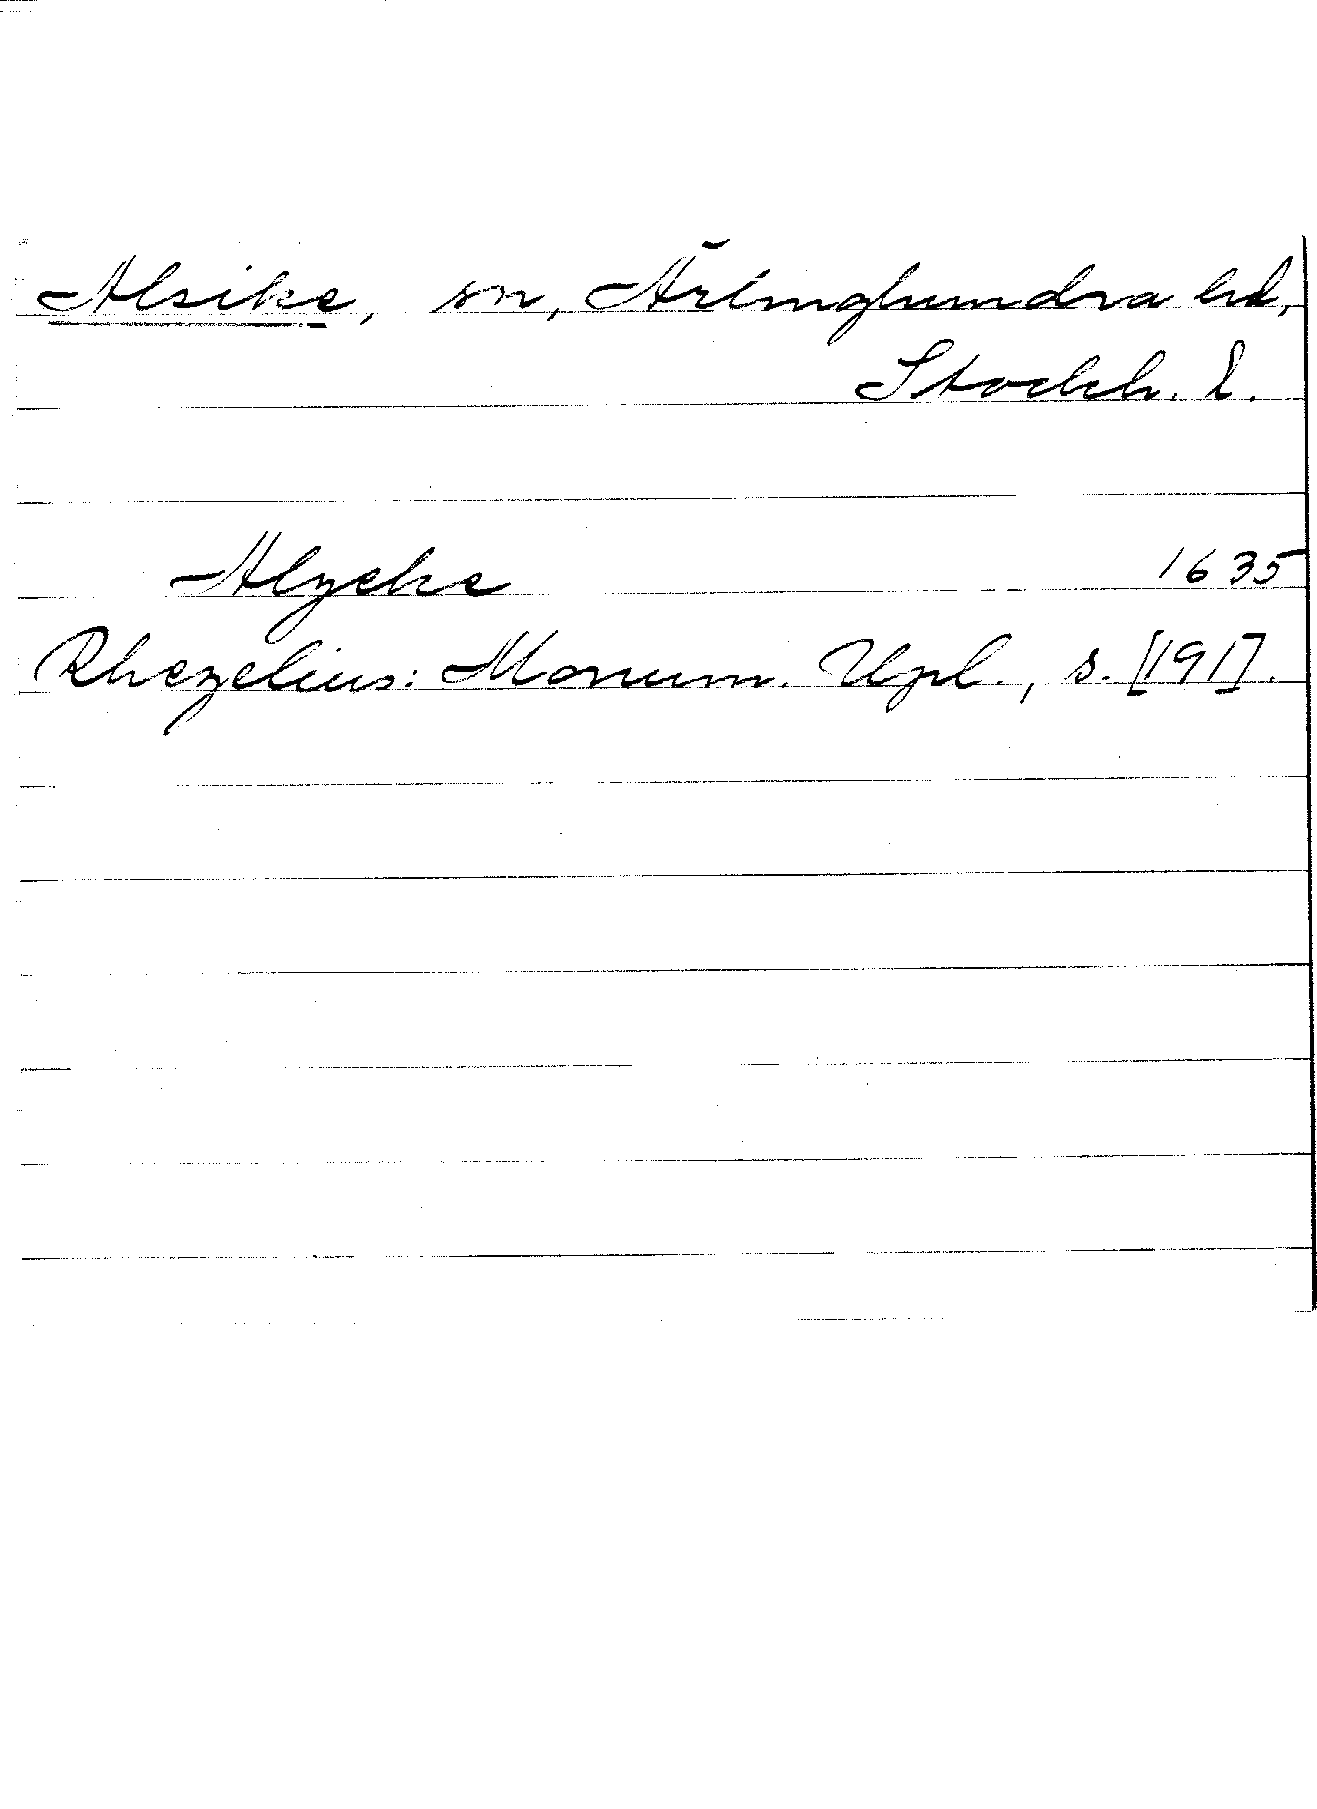 Alsike, sn, Ärlinghundra hd,
Stockh. l.
Alzeke 1635
Rhezelius: Monum. Upl., s. [191].